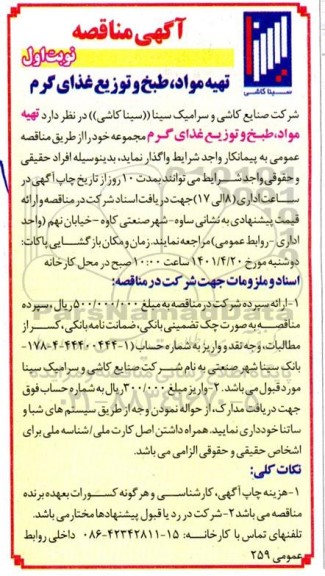 آگهی مناقصه
نوبت اول
تهیه مواد، طبخ و توزیع غذای گرم
سینا کاشی
شرکت صنایع کاشی و سرامیک سینا ((سینا کاشی)) در نظر دارد تهیه
مواد، طبخ و توزیع غذای گرم مجموعه خود را از طریق مناقصه
عمومی به پیمانکار واجد شرایط واگذار نماید، بدینوسیله افراد حقیقی
و حقوقی واجد شرایط می توانند بمدت ۱۰ روز از تاریخ چاپ آگهی در
ساعات اداری (۸ الی ۱۷) جهت دریافت اسناد شرکت در مناقصه و ارائه
قیمت پیشنهادی به نشانی ساوه- شهر صنعتی کاوه - خیابان نهم (واحد
اداری - روابط عمومی) مراجعه نمایند. زمان و مکان بازگشایی پاکات:
دوشنبه مورخ ۱۴۰۱/۴/۲۰ ساعت ۱۰:۰۰ صبح در محل کارخانه
اسناد و ملزومات جهت شرکت در مناقصه:
۱- ارائه سپرده شرکت در مناقصه به مبلغ ۵۰۰/۰۰۰/۰۰۰ ریال، سپرده
مناقصه به صورت چک تضمینی بانکی، ضمانت نامه بانکی، کسر از
مطالبات، وجه نقد و واریز به شماره حساب (۱-۴۴۴۰۰۴۴۴-۴-۱۷۸
بانک سینا شهر صنعتی به نام شرکت صنایع کاشی و سرامیک سینا
مورد قبول می باشد. ۲- واریز مبلغ ۳۰۰/۰۰۰ ریال به شماره حساب فوق
جهت دریافت مدارک، از حواله نمودن وجه از طریق سیستم های شبا و
ساتنا خودداری نمایید. همراه داشتن اصل کارت ملی/شناسه ملی برای
اشخاص حقیقی و حقوقی الزامی می باشد.
نکات کلی:
۱- هزینه چاپ آگهی، کارشناسی و هرگونه کسورات بعهده برنده
مناقصه می باشد ۲- شرکت در رد یا قبول پیشنهادها مختار می باشد.
تلفنهای تماس با کارخانه: ۱۵-۴۲۳۴۲۸۱۱-۰۸۶ داخلی روابط
عمومی ۲۵۹